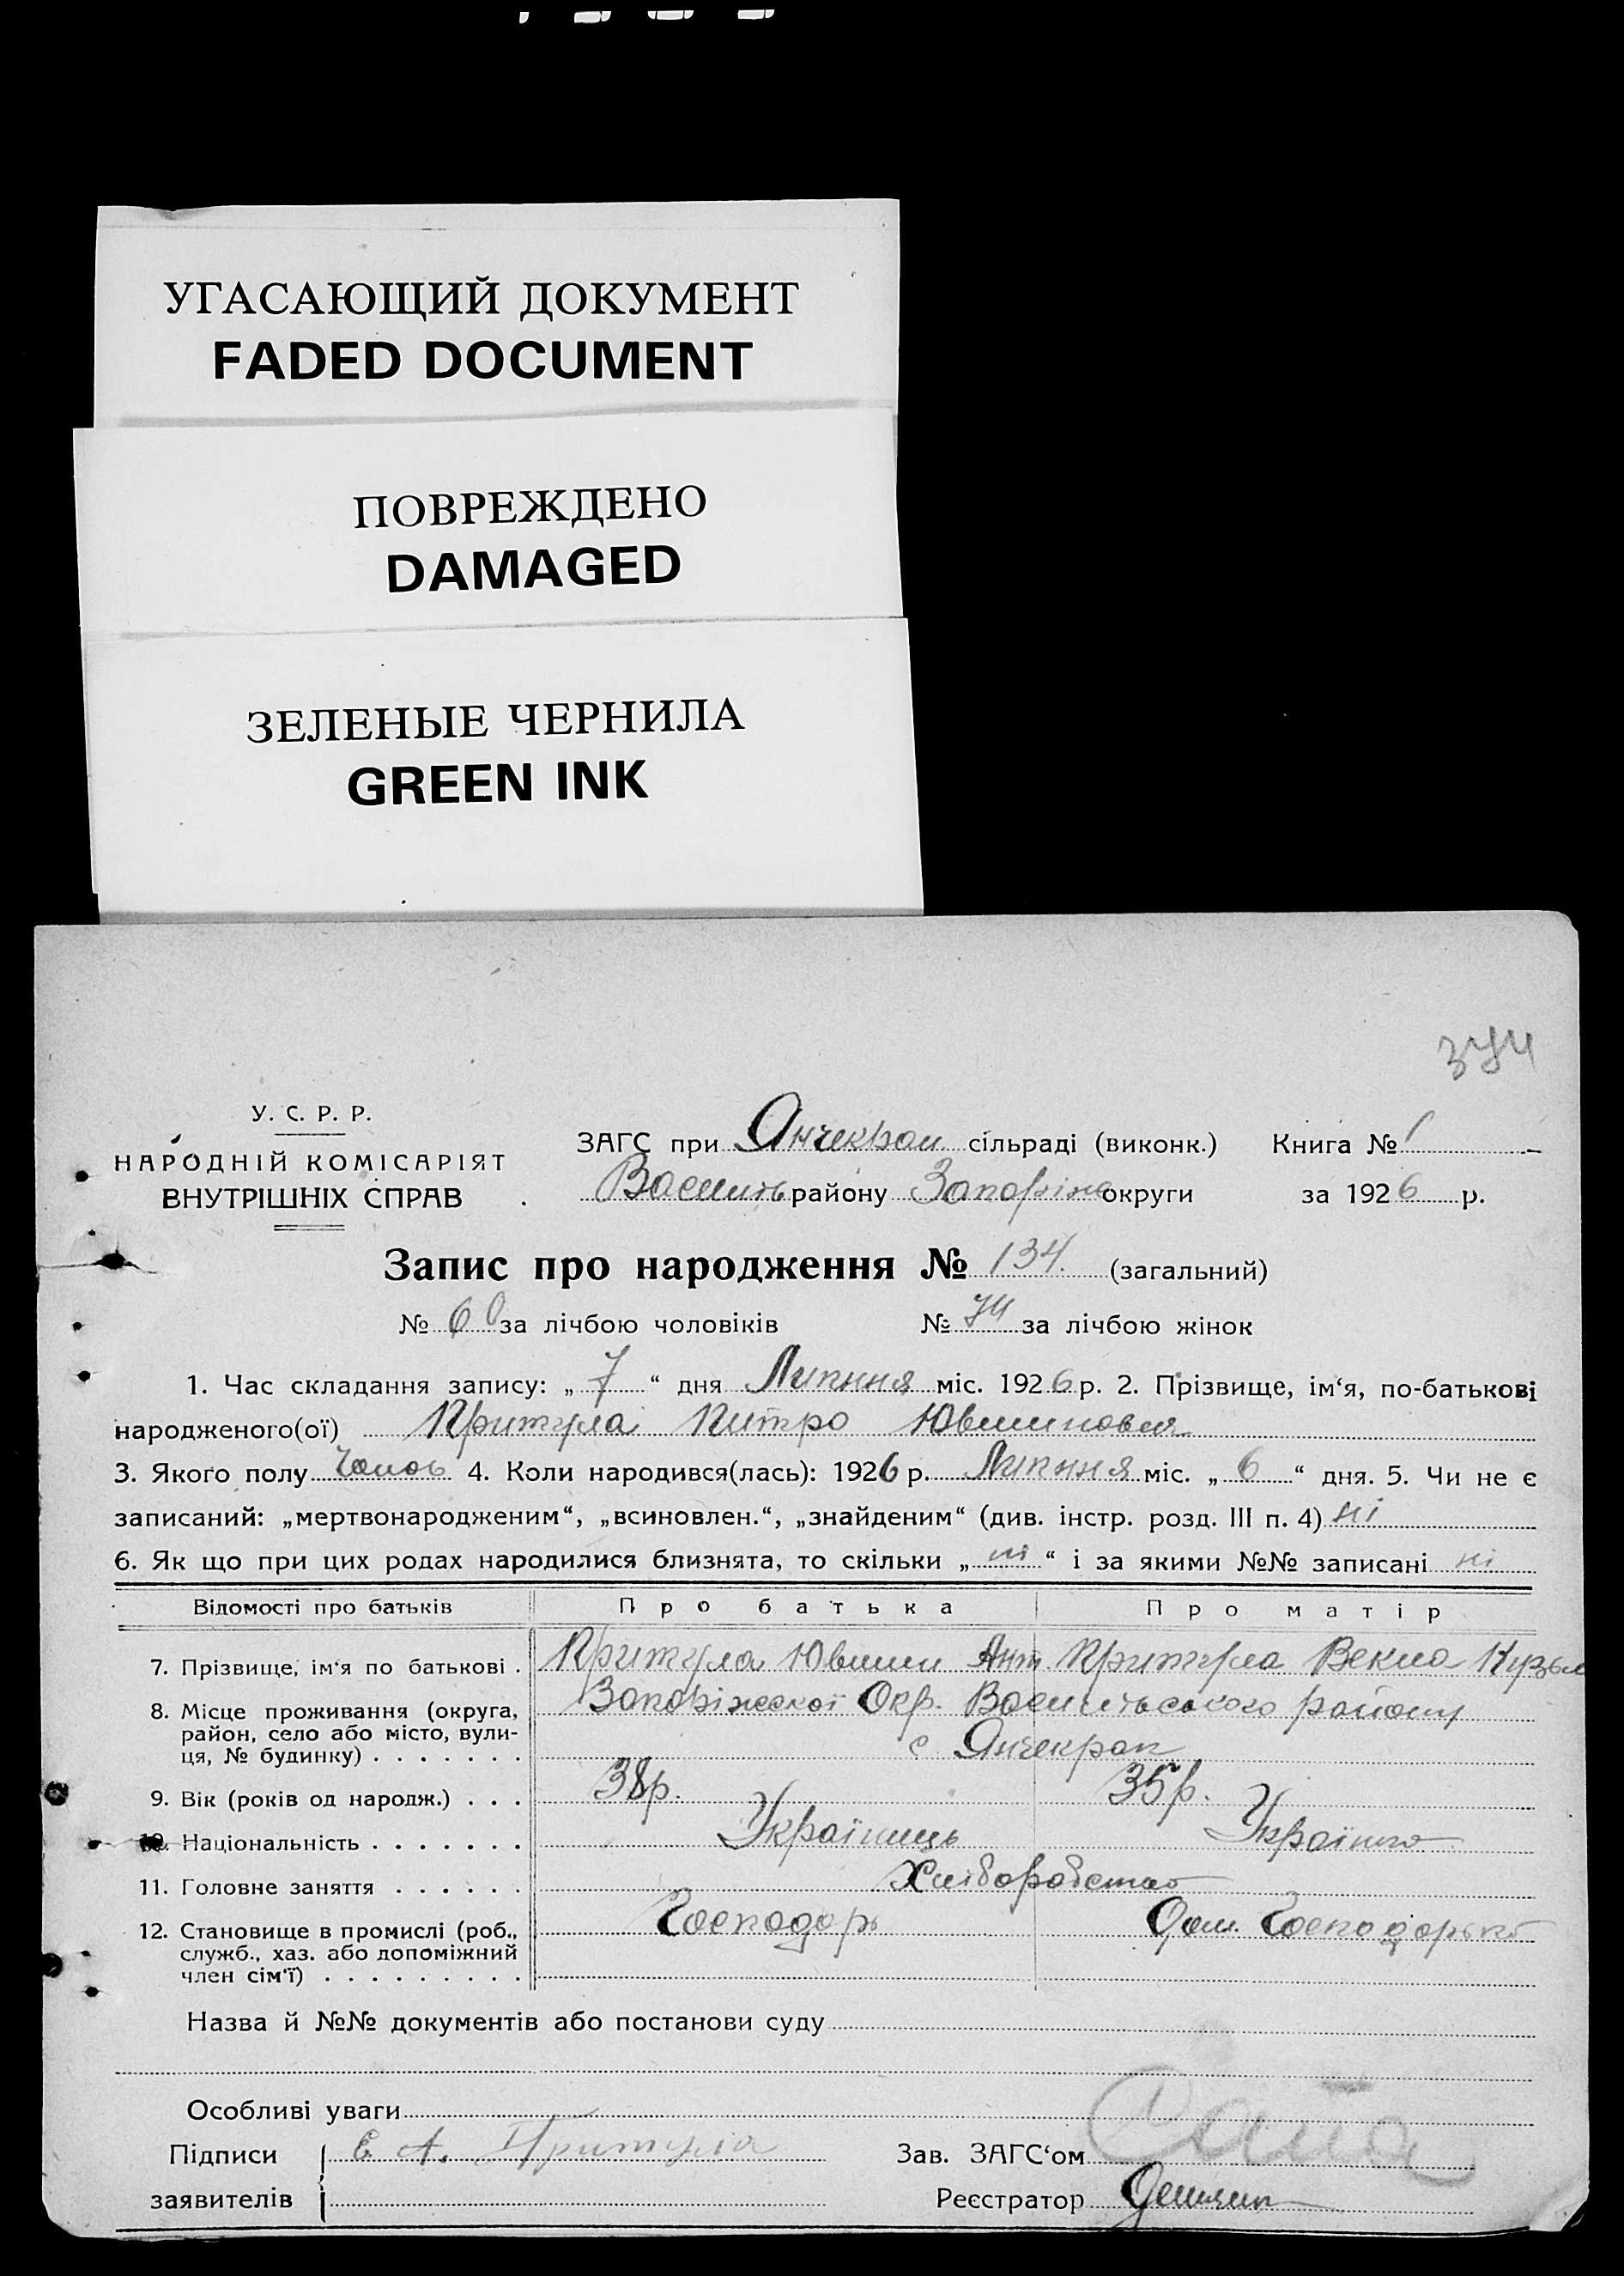 УГАСАЮЩИЙ ДОКУМЕНТ
FADED DOCUMENT
ПОВРЕЖДЕНО
DAMAGED
ЗЕЛЕНЫЕ ЧЕРНИЛА
GREEN INK
374
У. С. Р. Р.
НАРОДНІЙ КОМІСАРІЯТ
ВНУТРІШНІХ СПРАВ
ЗАГС при Янчекрак сільраді (виконк.) Книга № 1
Василів району Запоріж округи за 1926 р.
Запис про народження № 134. (загальний)
№ 60 за лічбою чоловіків № 74 за лічбою жінок
1. Час складання запису: „ 7 “ дня Липння міс. 1926 р. 2. Прізвище, ім‘я, по-батькові
народженого(ої) Притула Питро
3. Якого полу Чолов 4. Коли народився(лась): 1926 р. Липння міс. „ 6 “ дня. 5. Чи не є
записаний: „мертвонародженим“, „всиновлен.“, „знайденим“ (див. інстр. розд. III п. 4) ні
6. Як що при цих родах народилися близнята, то скільки „ ні “ і за якими №№ записані ні
Відомості про батьків Про батька Про матір
7. Прізвище, ім‘я по батькові . Притула Ант. Притула Векла Кузьм
8. Місце проживання (округа, Запоріжської Окр. району
район, село або місто, вули-
ця, № будинку) . . . . . . . с Янчекрак
9. Вік (років од народж.) . . . 38р. 35р.
10. Національність . . . . . . . Українець Українка
11. Головне заняття . . . . . . Хліборобство
12. Становище в промислі (роб., Господарь Дом. Господарька
служб., хаз. або допоміжний
член сім‘ї) . . . . . . . . .
Назва й №№ документів або постанови суду
Особливі уваги
Підписи Е. А. Притула Зав. ЗАГС‘ом
заявителів Реєстратор